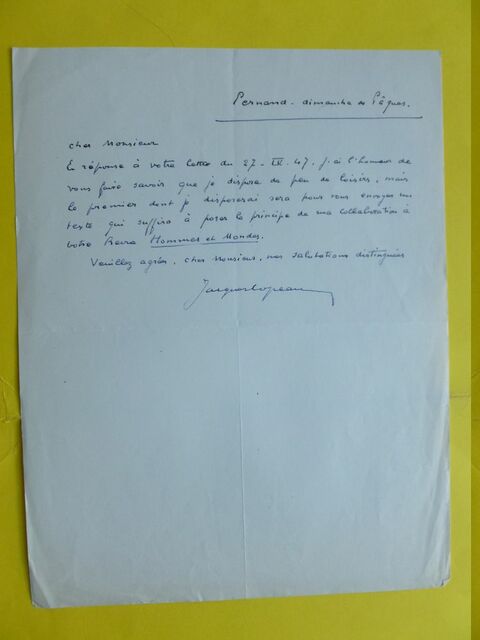 Pernand - dimanche de Pâques.
cher Monsieur
En réponse à votre lettre du 27-III.47, j'ai l'honneur de
vous faire savoir que je dispose de peu de loisirs, mais
le premier dont je disposerai sera pour vous envoyer un
texte qui suffira à poser le principe de ma collaboration à
votre Revue Hommes et Mondes.
Veuillez agréer, cher Monsieur, mes salutations distinguées
Jacques Copeau